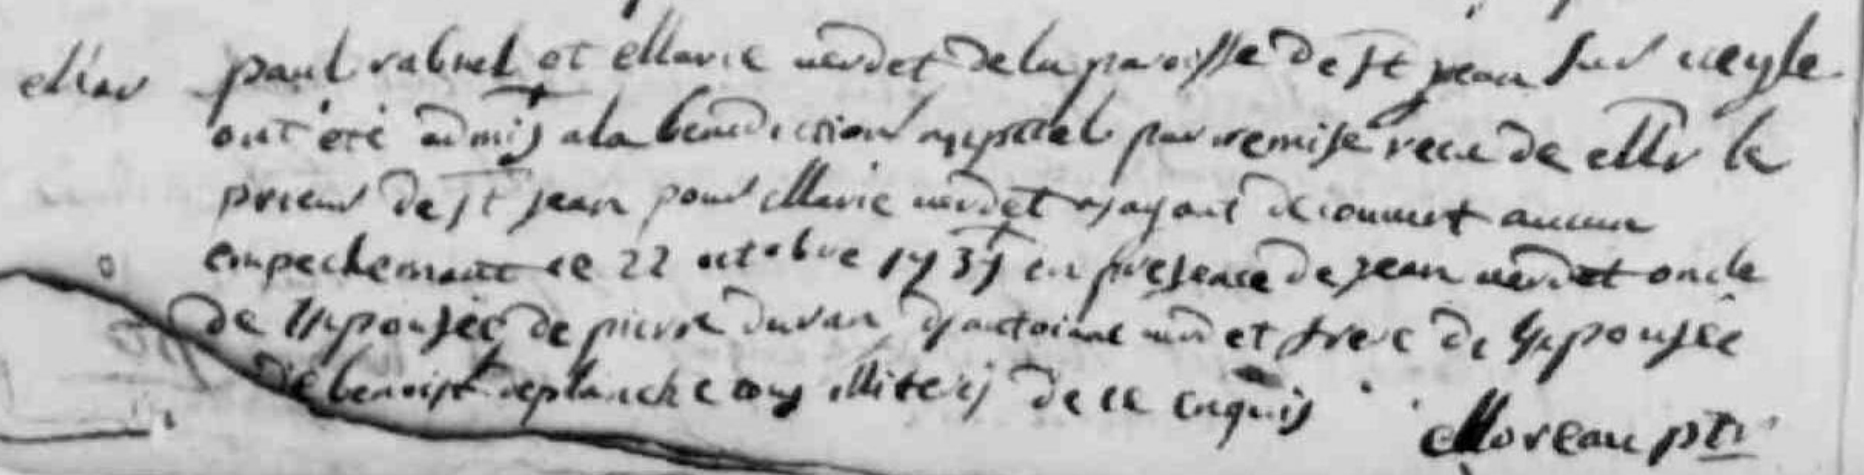 Mar paul rabuel et Marie verdet de la paroisse de st jean sur veyle
ont été admis a la benediction nuptial par remise recue de Mr le
prieur de st jean pour Marie verdet ayant decouvert aucun
empechement ce 22 octobre 173 en presence de jean verdet oncle
de l'epousée de pierre duran d'antoine verdet frere de l'epousée
de benoist deplanche tous illiterés de ce enquis
Moreau ptre